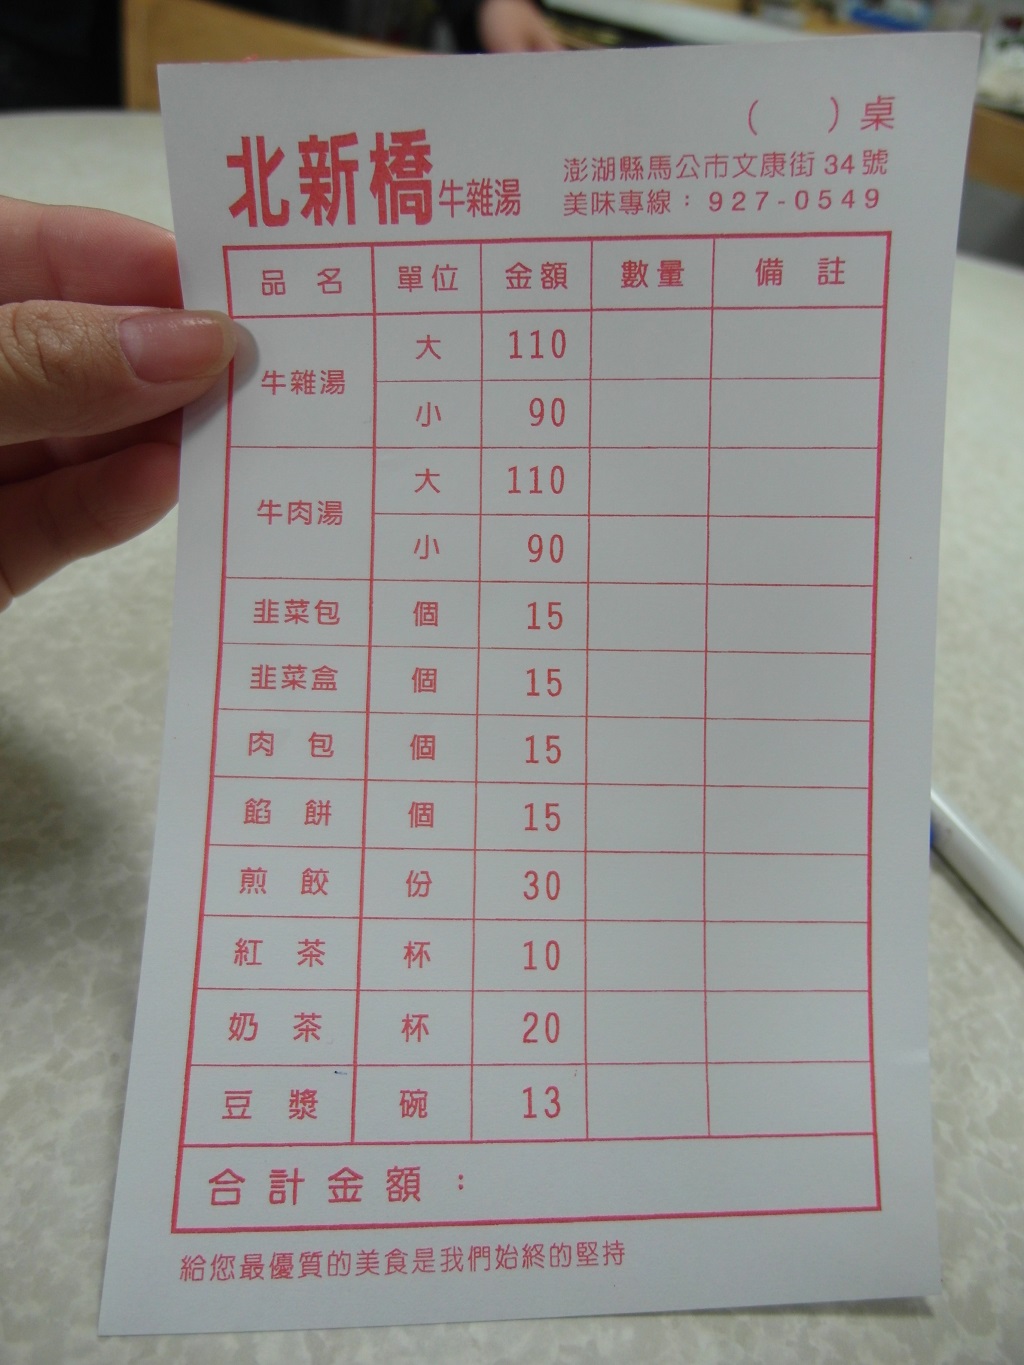 （　　）桌
北新橋牛雜湯
澎湖縣馬公市文康街34號
美味專線：927-0549
品名 單位 金額 數量 備註
牛雜湯 大 110
小 90
牛肉湯 大 110
小 90
韭菜包 個 15
韭菜盒 個 15
肉包 個 15
餡餅 個 15
煎餃 份 30
紅茶 杯 10
奶茶 杯 20
豆漿 碗 13
合計金額：
給您最優質的美食是我們始終的堅持